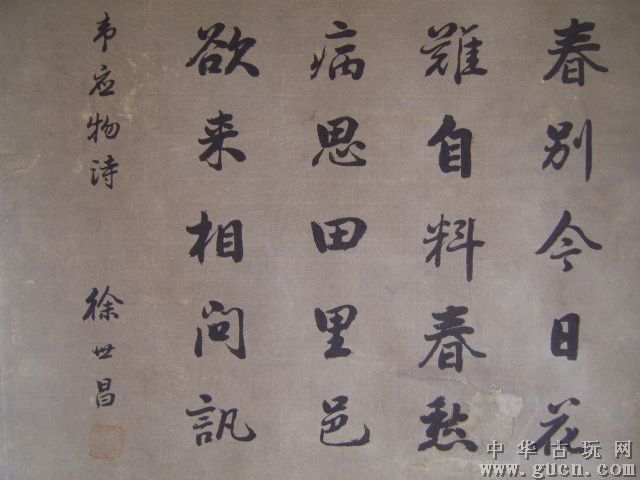 春别今日花
難自料春愁
病思田里邑
欲来相问訊
韦应物诗
徐世昌
中华古玩网
www.gucn.com